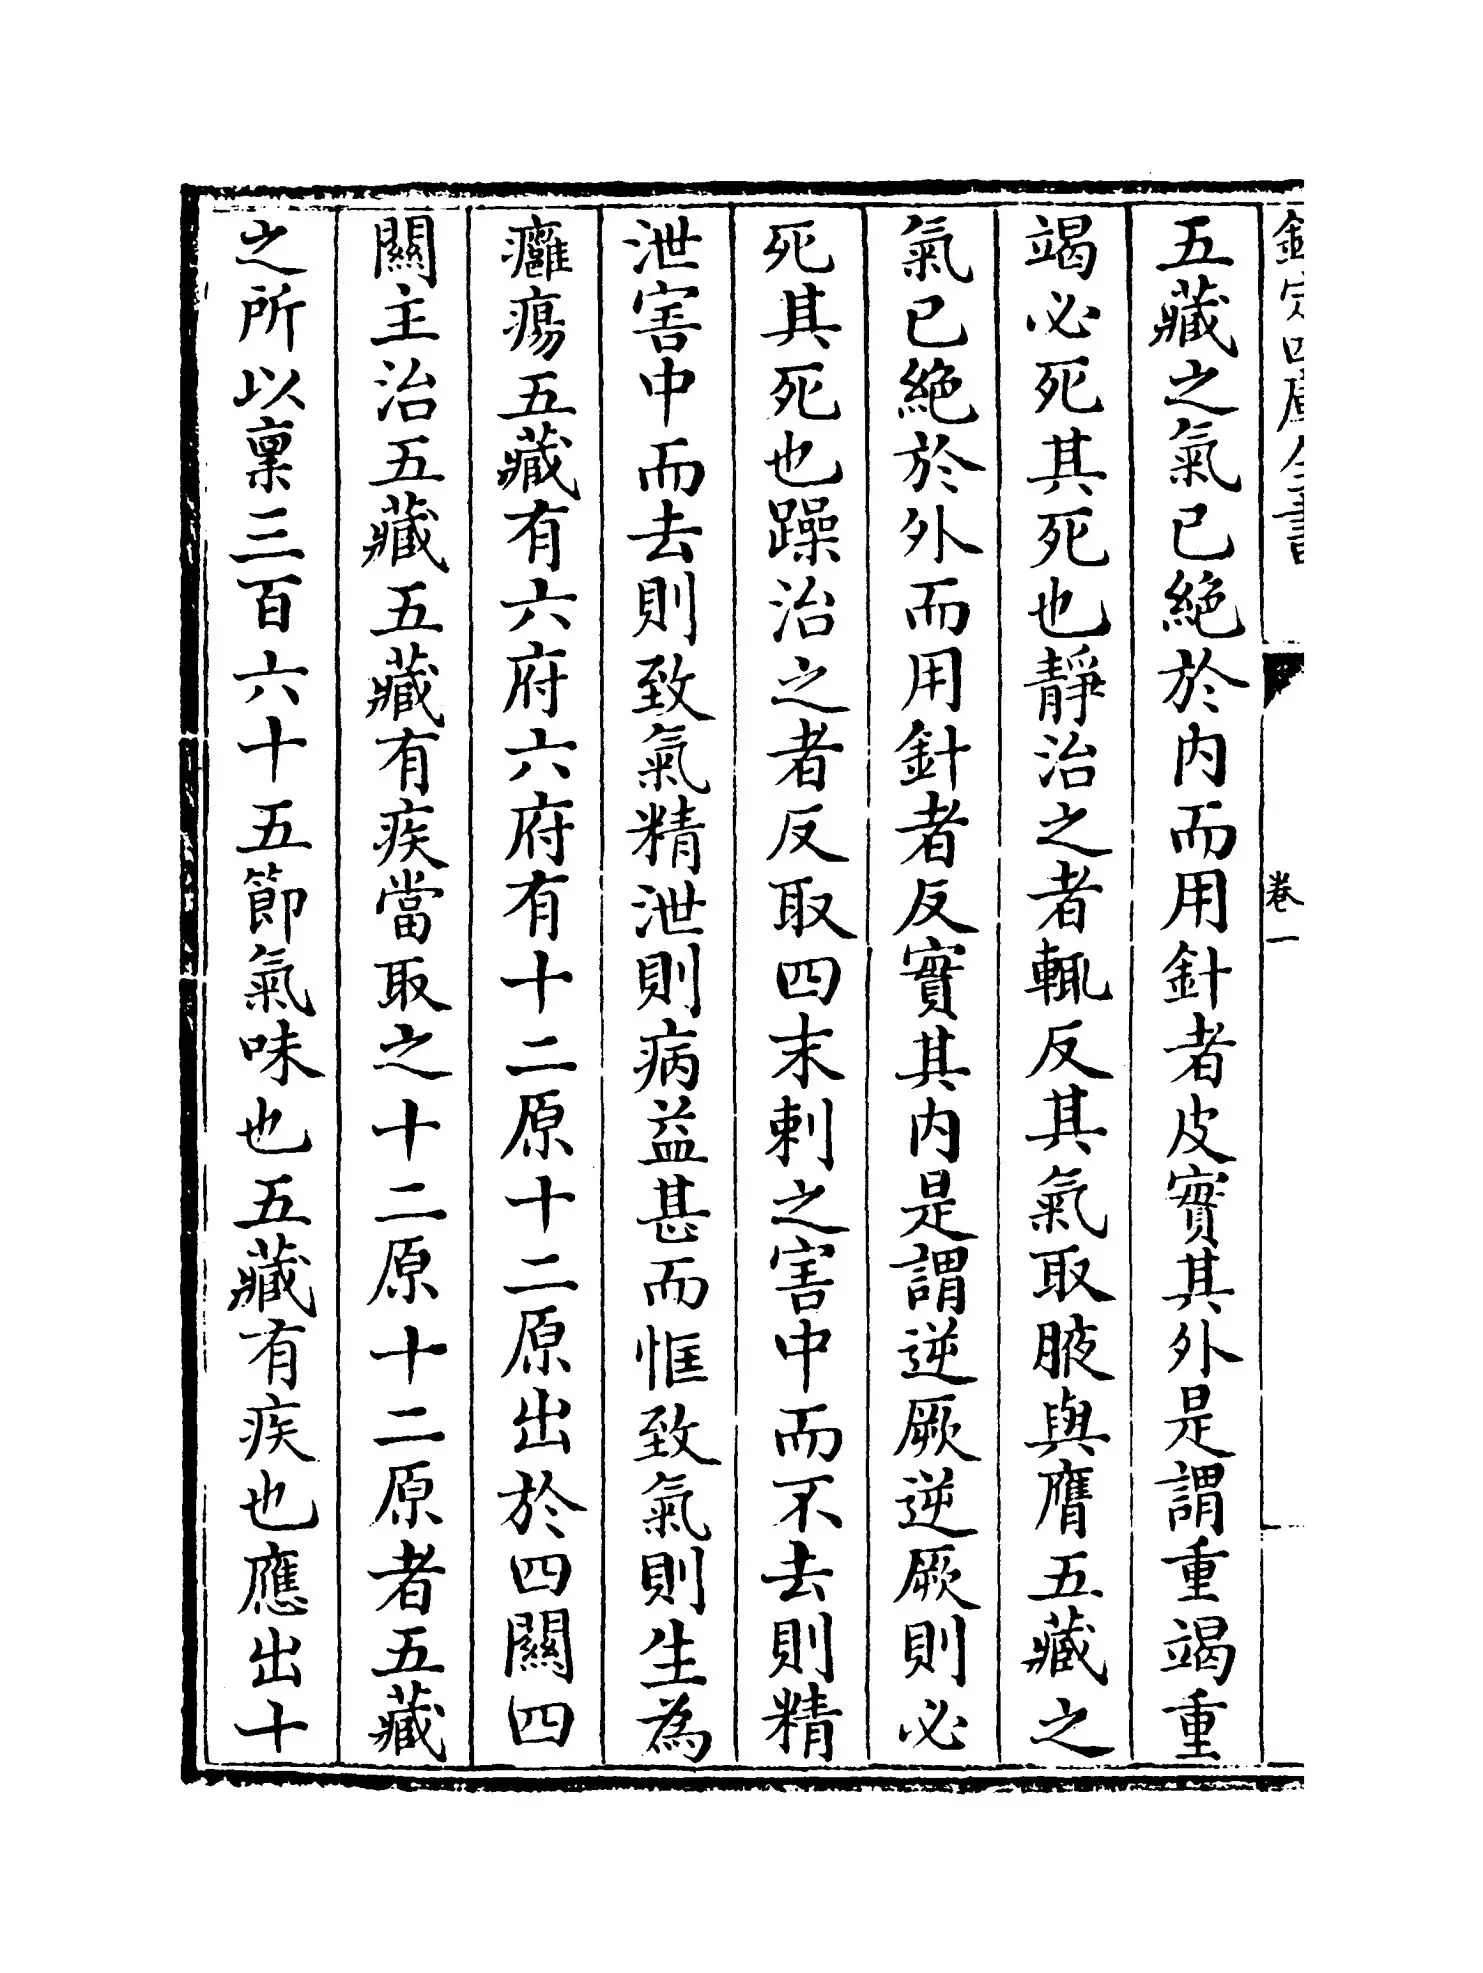 欽定四庫全書
卷一
五藏之氣已絶於内而用針者皮實其外是謂重竭重
竭必死其死也靜治之者輒反其氣取腋與膺五藏之
氣已絶於外而用針者反實其内是謂逆厥逆厥則必
死其死也躁治之者反取四末刺之害中而不去則精
泄害中而去則致氣精泄則病益甚而恇致氣則生為
癰瘍五藏有六府六府有十二原十二原出於四關四
關主治五藏五藏有疾當取之十二原十二原者五藏
之所以稟三百六十五節氣味也五藏有疾也應出十